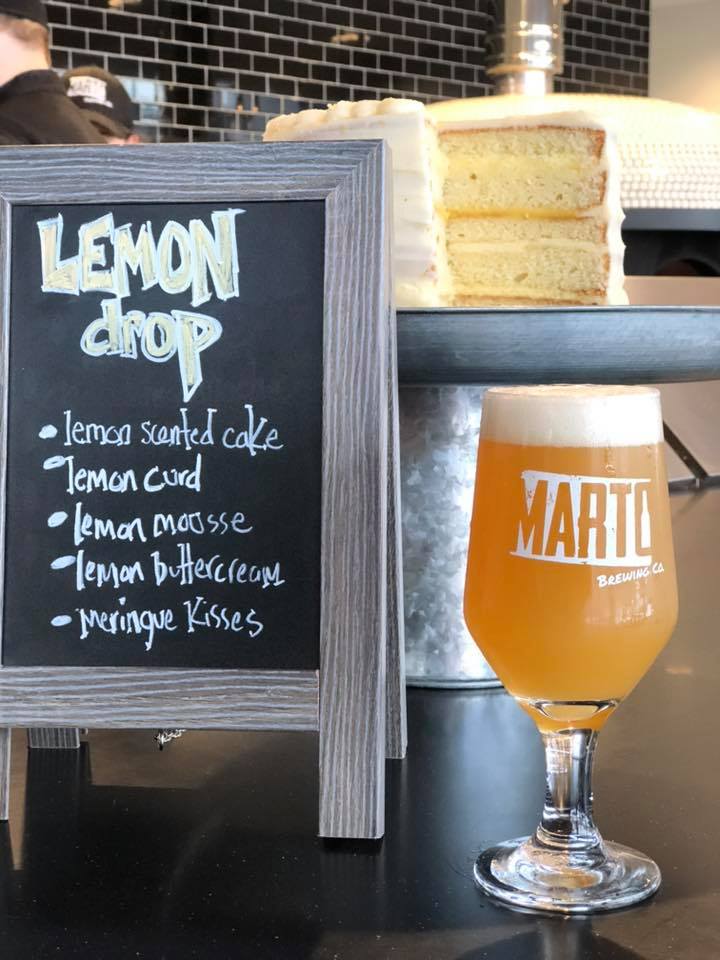 MARTO
LEMON
drop
• lemon scented cake
• lemon curd
• lemon mousse
• lemon buttercream
• Meringue Kisses
MARTO
BREWING CO.